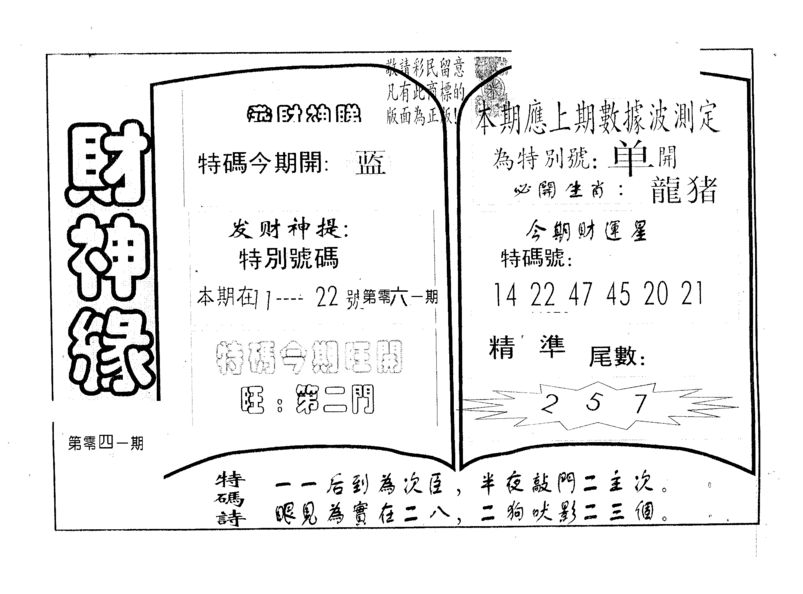 財神緣
第零四一期
敬請彩民留意
凡有此商標的
版面為正版!
特碼今期開: 蓝
发财神提:
特別號碼
本期在11----22號第零六一期
特碼今期旺開
旺:第二門
本期應上期數據波測定
為特別號:单開
必開生肖: 龍猪
今期财運星
特碼號:
14 22 47 45 20 21
精準 尾數:
2 5 7
特碼詩
一一后到為次臣,半夜敲門二主次。
眼見為實在二八,二狗吠影二三個。